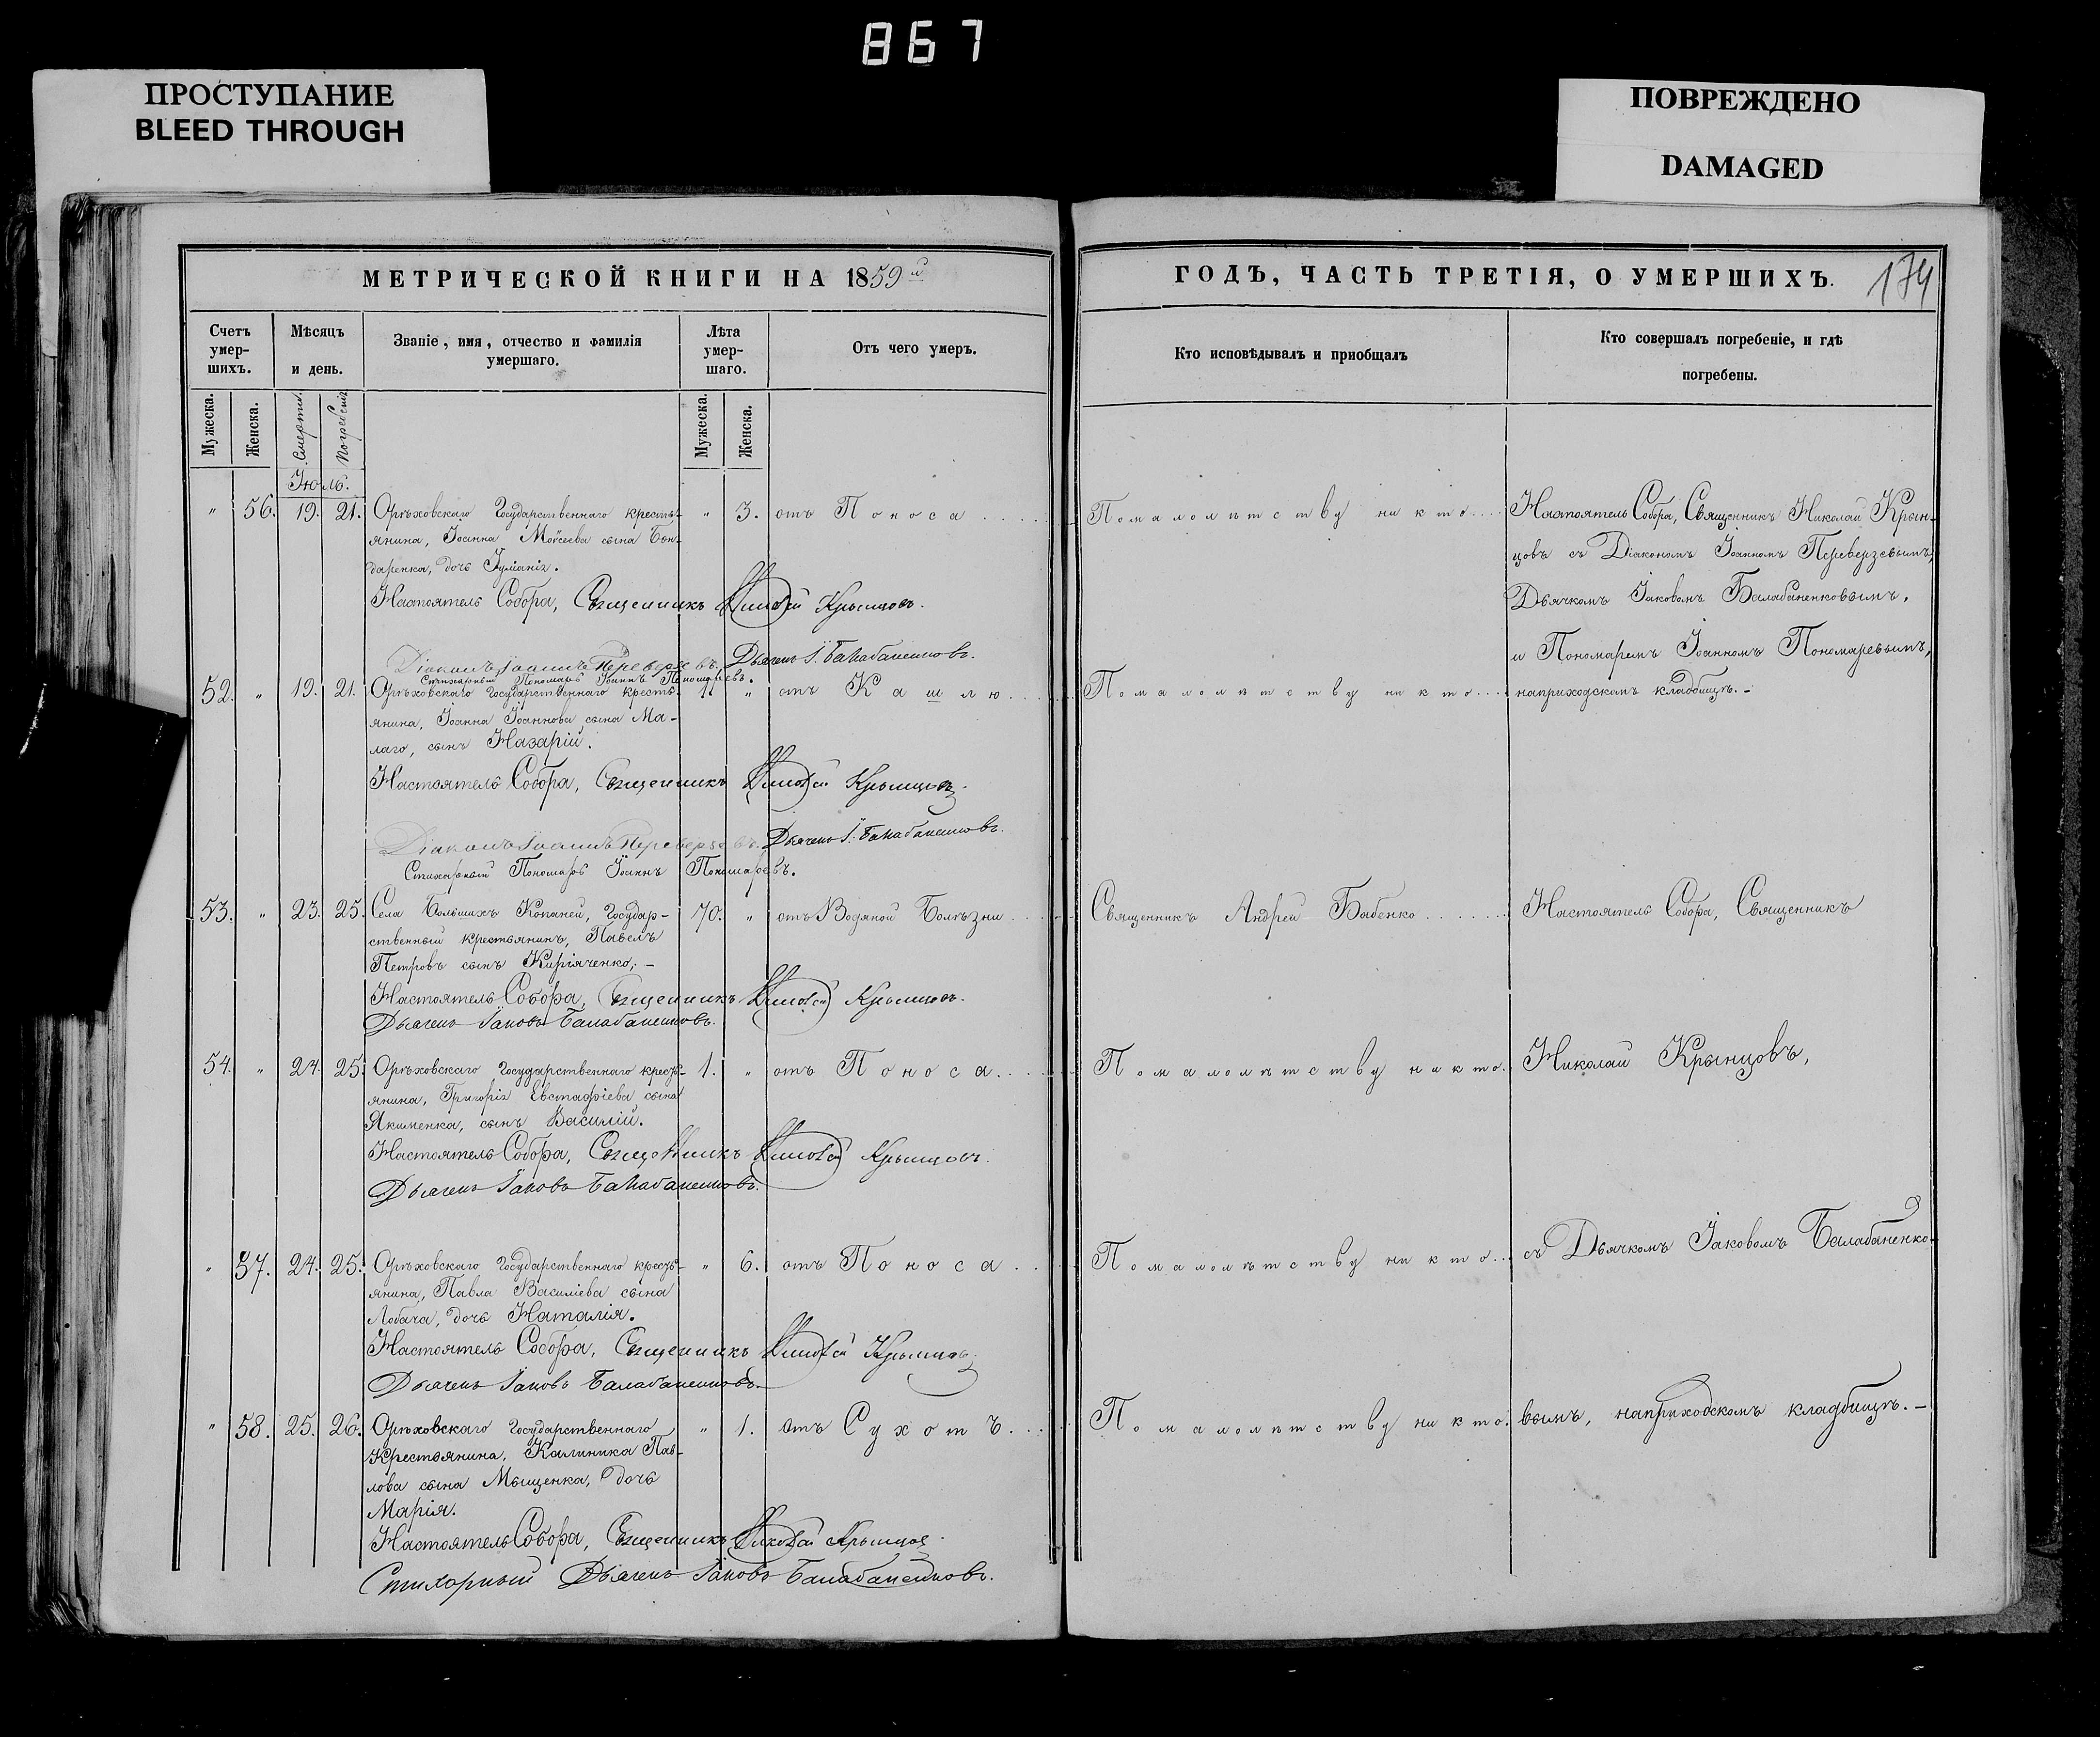 867
ПРОСТУПАНИЕ
BLEED THROUGH
ПОВРЕЖДЕНО
DAMAGED
МЕТРИЧЕСКОЙ КНИГИ НА 1859й
Счетъ умер- шихъ.
Мѣсяцъ и день.
Званіе, имя, отчество и фамилія умершаго.
Лѣта умер- шаго.
Отъ чего умеръ.
Мужеска.
Женска.
Смерти.
Погребенія
Мужеска.
Женска.
Іюль.
" 56. 19. 21. Орѣховскаго Государственнаго кресть- " 3. отъ Поноса
янина, Іоанна Моѵсеева сына Бон-
даренка, дочь
Настоятель Собора, Священникъ Николай Крынцовъ.
Діаконъ Іоаннъ Переверзевъ. Дьячекъ І. Балабаненковъ.
Стихарный Пономарь Іоаннъ Пономаревъ.
52. " 19. 21. Орѣховскаго Государственнаго кресть- 1. " отъ Кашлю
янина, Іоанна Іоаннова сына Ма-
лаго, сынъ Назарій.
Настоятель Собора, Священникъ Николай Крынцовъ.
Діаконъ Іоаннъ Переверзевъ. Дьячекъ І. Балабаненковъ.
Стихарный Пономарь Іоаннъ Пономаревъ.
53. " 23. 25. Села Большихъ Копаней, Государ- 70. " отъ Водяной Болѣзни
ственный крестьянинъ, Павелъ
Петровъ сынъ Киріяченко,-
Настоятель Собора, Священникъ Николай Крынцовъ.
Дьячекъ Іаковъ Балабаненковъ.
54. " 24. 25. Орѣховскаго Государственнаго кресть- 1. " отъ Поноса
янина, Григорія Евстафіева сына
Якименка, сынъ Василій.
Настоятель Собора, Священникъ Николай Крынцовъ.
Дьячекъ Іаковъ Балабаненковъ.
" 57. 24. 25. Орѣховскаго Государственнаго кресть- " 6. отъ Поноса
янина, Павла Василіева сына
Лобача, дочь Наталія.
Настоятель Собора, Священникъ Николай Крынцовъ.
Дьячекъ Іаковъ Балабаненковъ.
" 58. 25. 26. Орѣховскаго Государственнаго " 1. отъ Сухотъ
Крестьянина, Калиника Пав-
лова сына Мищенка, дочь
Марія.
Настоятель Собора, Священникъ Николай Крынцовъ
Стихарный Дьячекъ Іаковъ Балабаненковъ.
ГОДЪ, ЧАСТЬ ТРЕТІЯ, О УМЕРШИХЪ.
174
Кто исповѣдывалъ и приобщалъ
Кто совершалъ погребеніе, и гдѣ погребены.
По малолѣтству никто Настоятель Собора, Священникъ Николай Крын-
цовъ съ Діакономъ Іоанномъ Переверзевымъ,
Дьячкомъ Іаковомъ Балабаненковымъ,
и Пономаремъ Іоанномъ Пономаревымъ,
По малолѣтству никто на приходскомъ кладбищѣ.-
Священникъ Андрей Бабенко Настоятель Собора, Священникъ
По малолѣтству никто. Николай Крынцовъ,
По малолѣтству никто съ Дьячкомъ Іаковомъ Балабаненко-
По малолѣтству никто. вымъ, на приходскомъ кладбищѣ.-